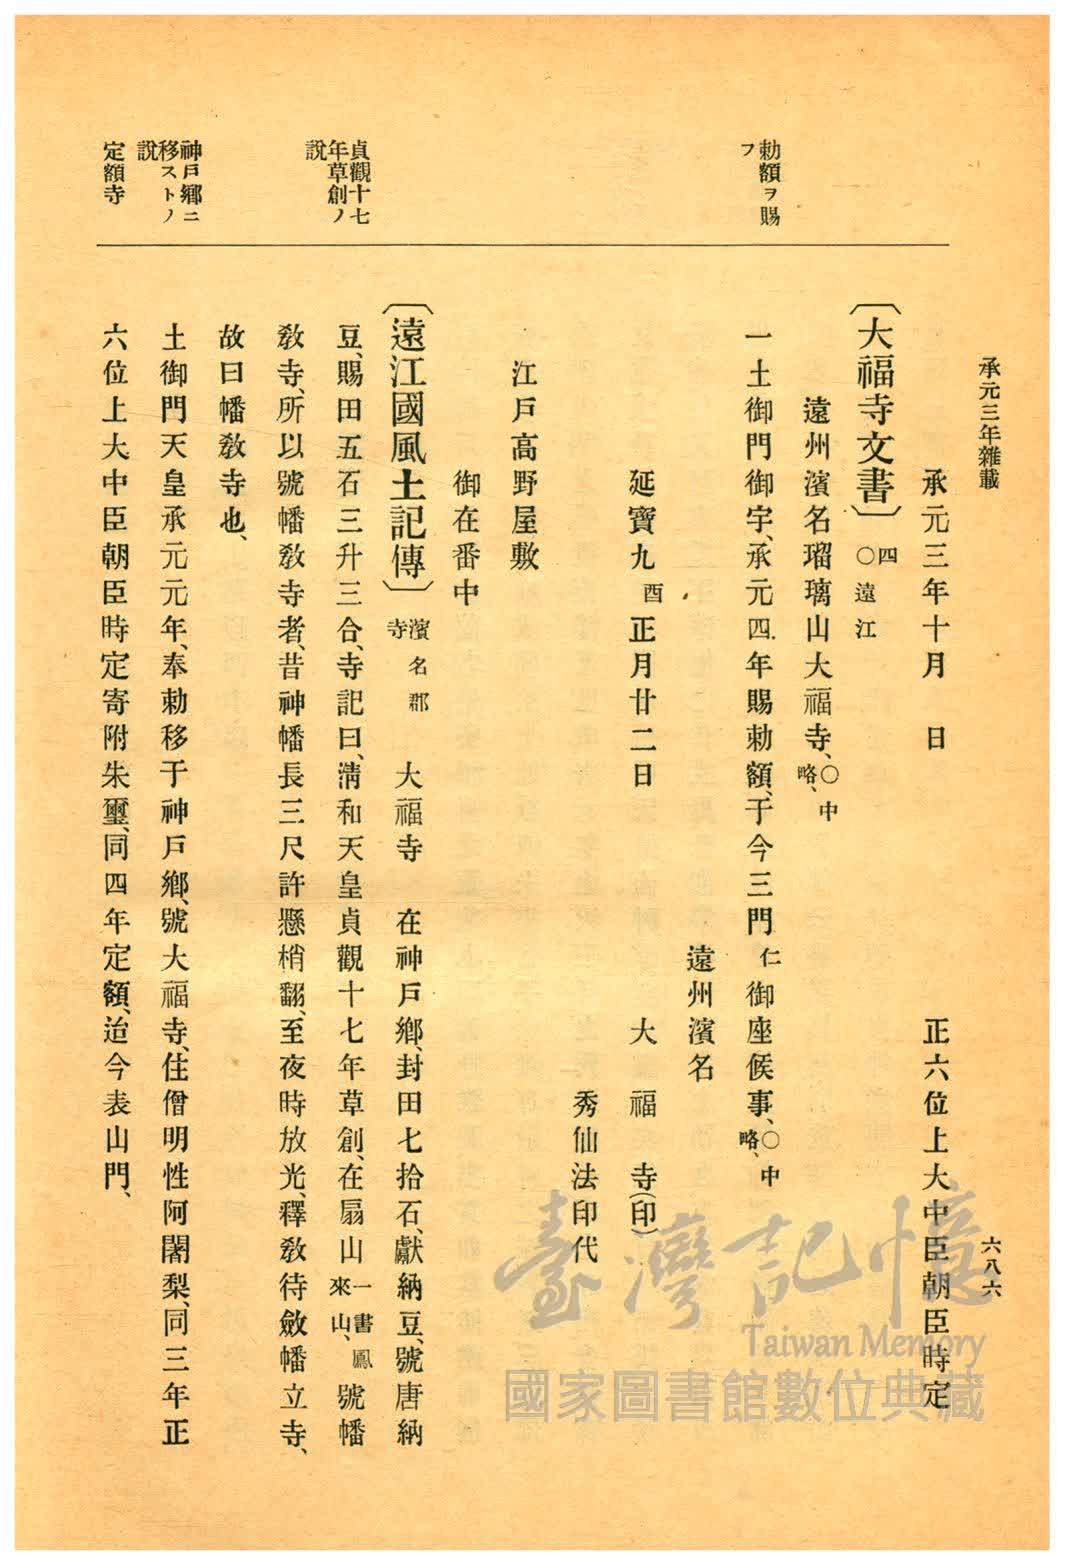 承元三年雜載
六八六
勅額ヲ賜
フ
貞觀十七
年草創ノ
說
神戸鄕ニ
移ストノ
說
定額寺
承元三年十月　日　正六位上大中臣朝臣時定
〔大福寺文書〕四〇遠江
遠州濱名瑠璃山大福寺、〇中略、
一土御門御宇、承元四年賜勅額、于今三門仁御座候事、〇中略、
遠州濱名
延寶九酉正月廿二日　大福寺(印)
秀仙法印代
江戸高野屋敷
御在番中
〔遠江國風土記傳〕濱名郡寺　大福寺　在神戸鄕、封田七拾石、獻納豆、號唐納
豆、賜田五石三升三合、寺記曰、淸和天皇貞觀十七年草創、在扇山一書鳳來山、號幡
敎寺、所以號幡敎寺者、昔神幡長三尺許懸梢翻、至夜時放光、釋敎待斂幡立寺、
故曰幡敎寺也、
土御門天皇承元元年、奉勅移于神戸鄕、號大福寺、住僧明性阿闍梨、同三年正
六位上大中臣朝臣時定寄附朱璽、同四年定額、迨今表山門、
臺灣記憶
Taiwan Memory
國家圖書館數位典藏